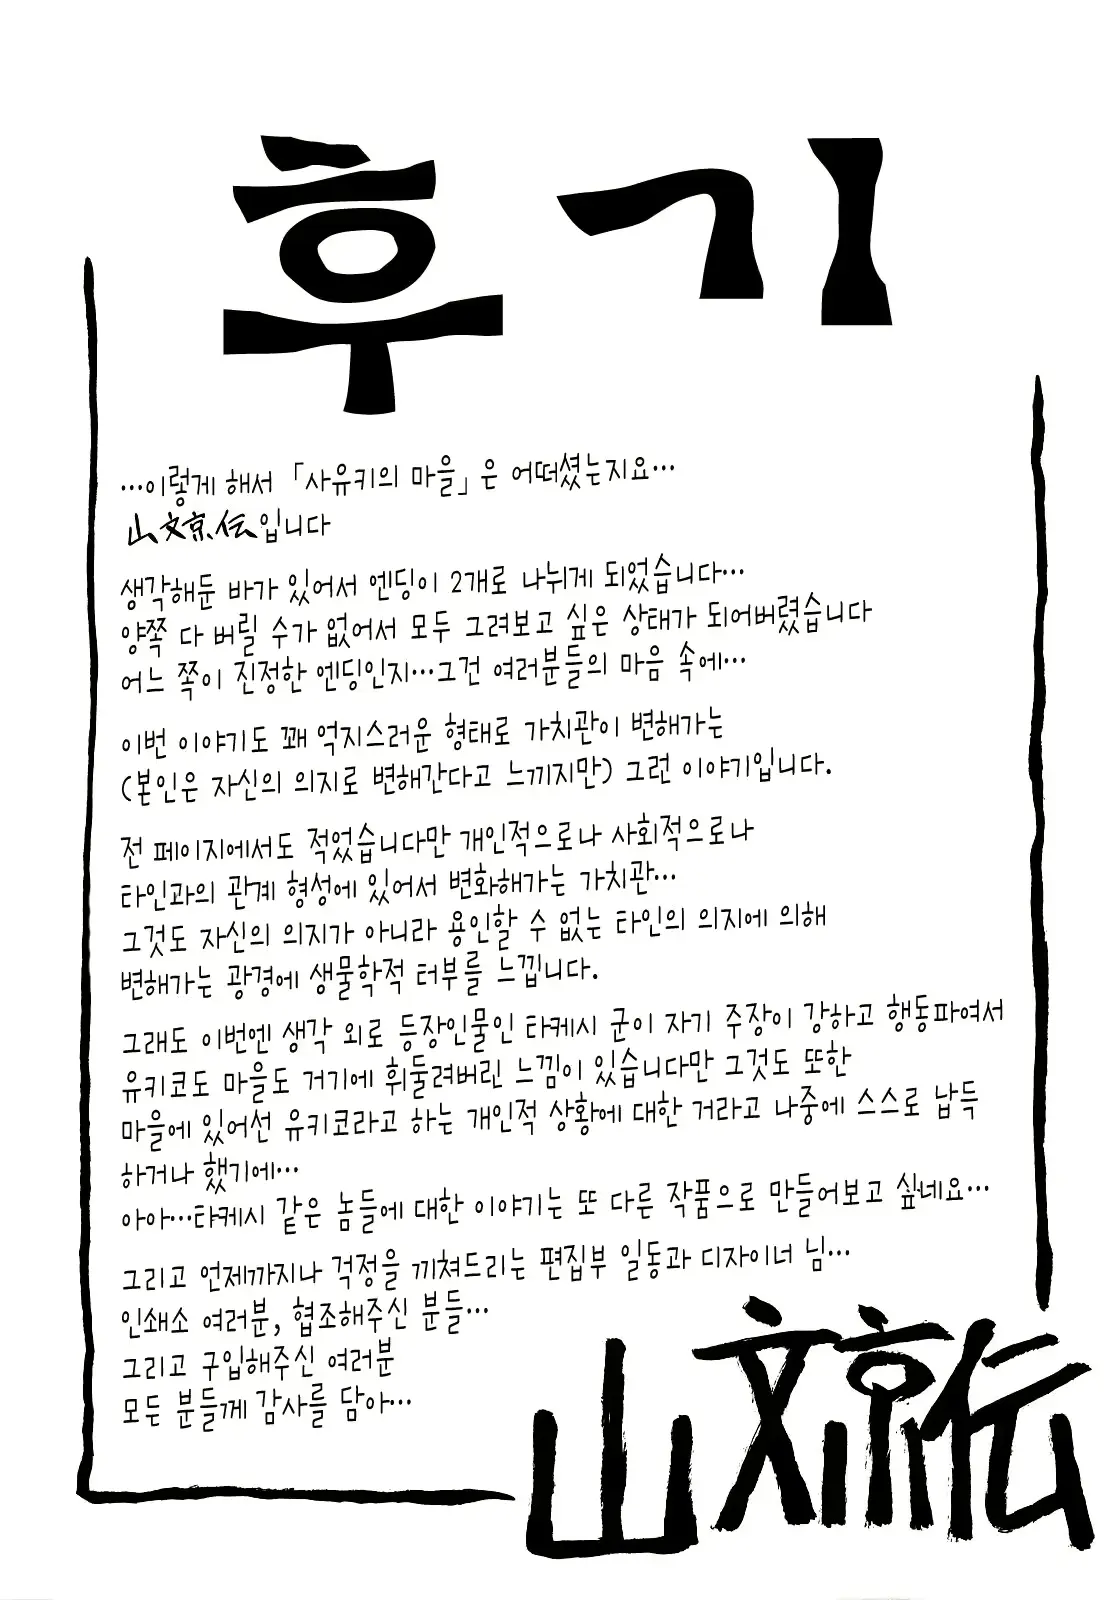 후기
…이렇게 해서 「사유키의 마을」은 어떠셨는지요…
山文京伝입니다
생각해둔 바가 있어서 엔딩이 2개로 나뉘게 되었습니다…
양쪽 다 버릴 수가 없어서 모두 그려보고 싶은 상태가 되어버렸습니다
어느 쪽이 진정한 엔딩인지…그건 여러분들의 마음 속에…
이번 이야기도 꽤 억지스러운 형태로 가치관이 변해가는
(본인은 자신의 의지로 변해간다고 느끼지만) 그런 이야기입니다.
전 페이지에서도 적었습니다만 개인적으로나 사회적으로나
타인과의 관계 형성에 있어서 변화해가는 가치관…
그것도 자신의 의지가 아니라 용인할 수 없는 타인의 의지에 의해
변해가는 광경에 생물학적 터부를 느낍니다.
그래도 이번엔 생각 외로 등장인물인 타케시 군이 자기 주장이 강하고 행동파여서
유키코도 마을도 거기에 휘둘려버린 느낌이 있습니다만 그것도 또한
마을에 있어선 유키코라고 하는 개인적 상황에 대한 거라고 나중에 스스로 납득
하거나 했기에…
아아…타케시 같은 놈들에 대한 이야기는 또 다른 작품으로 만들어보고 싶네요…
그리고 언제까지나 걱정을 끼쳐드리는 편집부 일동과 디자이너 님…
인쇄소 여러분, 협조해주신 분들…
그리고 구입해주신 여러분
모든 분들께 감사를 담아…
山文京伝